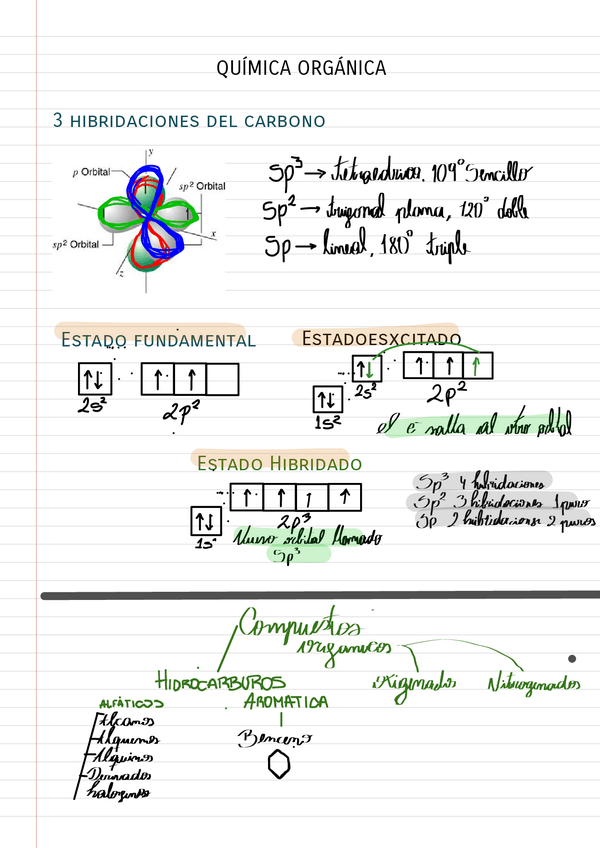 QUÍMICA ORGÁNICA
3 HIBRIDACIONES DEL CARBONO
y
p Orbital
sp² Orbital
x
sp² Orbital
z
Sp³ → tetraedrica, 109° Sencillo
Sp² → trigonal plana, 120° doble
Sp → lineal, 180° triple
ESTADO FUNDAMENTAL
2s² 2p²
ESTADOESXCITADO
1s² 2s² 2p²
el e salta al otro orbital
ESTADO HIBRIDADO
2p³
Nuevo orbital llamado
Sp³
Sp³ 4 hibridaciones
Sp² 3 hibridaciones 1 puro
Sp 2 hibridaciones 2 puros
Compuestos
organicos
HIDROCARBUROS oxigenados Nitrogenados
ALFÁTICOS AROMATICA
Alcanos
Alquenos
Alquinos
Derivados
halogenos
Benceno